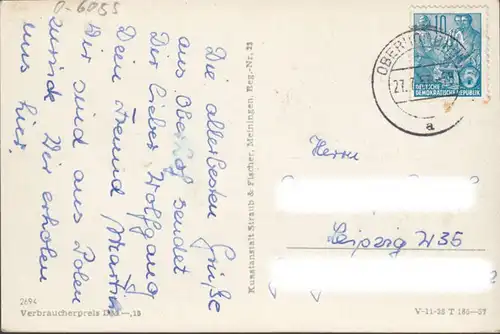 0-6055
Die allerbesten Grüße
aus Oberhof sendet
Dir lieber Wolfgang
Dein Freund Martin
Wir sind aus Polen
zurück. Wir erholen
uns hier.
2694
Verbraucherpreis DM —,15
Kunstanstalt Straub & Fischer, Meiningen, Reg.-Nr. 23
10
DEUTSCHE
DEMOKRATISCHE REPUBLIK
27.
a
Herrn
Leipzig W35
V-11-28 T 185—57